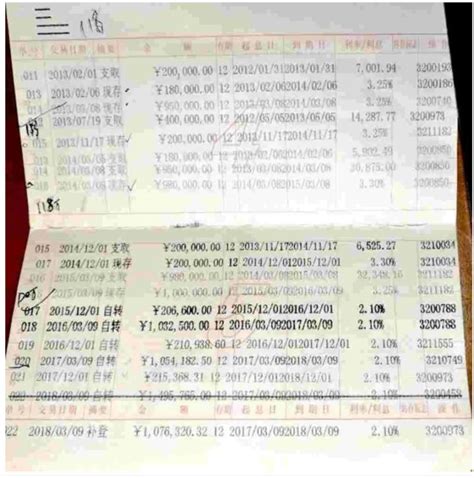 单号 交易日期 摘要 金 额 存期 起息日 到期日 利率/利息
011 2013/02/01 支取 ¥200,000.00 12 2012/01/31 2013/01/31 7,001.94 3200193
013 2013/02/06 现存 ¥180,000.00 12 2013/02/06 2014/02/06 3.25% 3200186
014 现存 ¥950,000.00 12 2013/03/08 2014/03/08 3.25% 3200740
2013/07/19 支取 ¥400,000.00 12 2012/05/05 2013/05/05 14,287.77 3200973
015 2013/11/17 现存 ¥200,000.00 12 2013/11/17 2014/11/17 3.25% 3211182
支取 ¥180,000.00 12 2013/02/06 2014/02/06 3200850
支取 ¥950,000.00 12 2013/03/08 2014/03/08 30,875.00 3200850
现存 ¥980,000.00 12 2014/03/08 2015/03/08 3.30% 3200850
015 2014/12/01 支取 ¥200,000.00 12 2013/11/17 2014/11/17 6,525.27 3210034
017 2014/12/01 现存 ¥200,000.00 12 2014/12/01 2015/12/01 3.30% 3210034
016 2015/03/09 支取 ¥980,000.00 12 2014/03/08 2015/03/08 3211182
2015/03/09 现存 ¥1,000,000.00 12 2015/03/09 2016/03/09 3211182
017 2015/12/01 自转 ¥206,600.00 12 2015/12/01 2016/12/01 2.10% 3200788
018 2016/03/09 自转 ¥1,032,500.00 12 2016/03/09 2017/03/09 2.10% 3200788
019 2016/12/01 自转 ¥210,938.60 12 2016/12/01 2017/12/01 2.10% 3211555
020 2017/03/09 自转 ¥1,054,182.50 12 2017/03/09 2018/03/09 2.10% 3210749
021 2017/12/01 自转 ¥215,368.31 12 2017/12/01 2018/12/01 2.10% 3200973
单号 交易日期 摘要 金 额 存期 起息日 到期日 利率/利息
022 2018/03/09 补登 ¥1,076,320.32 12 2017/03/09 2018/03/09 2.10% 3200973